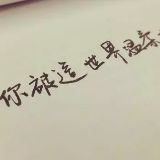 你被這世界溫柔